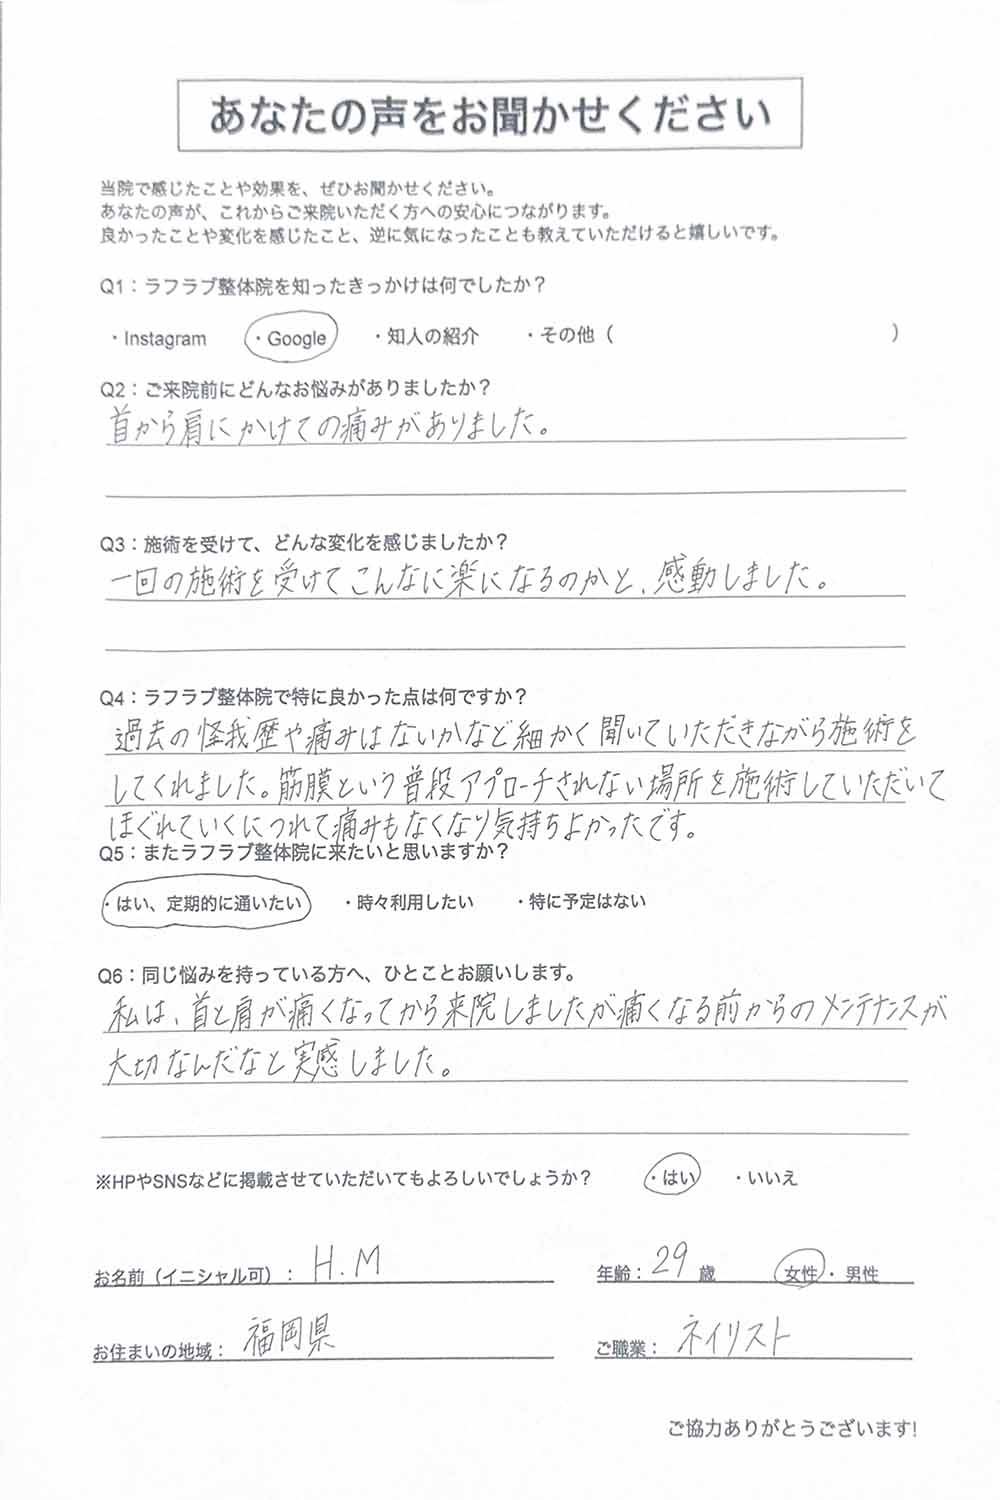 あなたの声をお聞かせください
当院で感じたことや効果を、ぜひお聞かせください。
あなたの声が、これからご来院いただく方への安心につながります。
良かったことや変化を感じたこと、逆に気になったことも教えていただけると嬉しいです。
Q1：ラフラブ整体院を知ったきっかけは何でしたか？
・Instagram ・Google ・知人の紹介 ・その他（ ）
Q2：ご来院前にどんなお悩みがありましたか？
首から肩にかけての痛みがありました。
Q3：施術を受けて、どんな変化を感じましたか？
一回の施術を受けてこんなに楽になるのかと、感動しました。
Q4：ラフラブ整体院で特に良かった点は何ですか？
過去の怪我歴や痛みはないかなど細かく聞いていただきながら施術を
してくれました。筋膜という普段アプローチされない場所を施術していただいて
ほぐれていくにつれて痛みもなくなり気持ちよかったです。
Q5：またラフラブ整体院に来たいと思いますか？
・はい、定期的に通いたい ・時々利用したい ・特に予定はない
Q6：同じ悩みを持っている方へ、ひとことお願いします。
私は、首と肩が痛くなってから来院しましたが痛くなる前からのメンテナンスが
大切なんだなと実感しました。
※HPやSNSなどに掲載させていただいてもよろしいでしょうか？ ・はい ・いいえ
お名前（イニシャル可）： H.M 年齢： 29 歳 女性 ・ 男性
お住まいの地域： 福岡県 ご職業： ネイリスト
ご協力ありがとうございます!